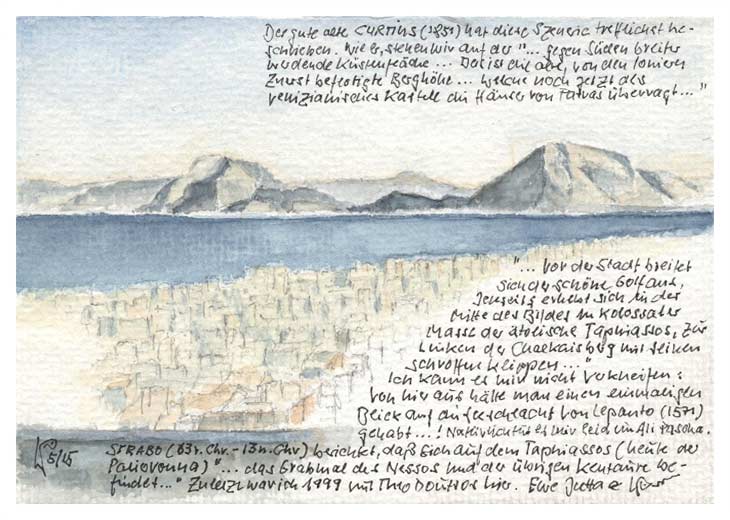 Der gute alte CURTIUS (1851) hat diese Szenerie trefflichst be-
schrieben. Wie er, stehen wir auf der "... gegen Süden breiter
werdende Küstenfläche ... Das ist die alte, von den Ioniern
Zuerst befestigte Berghöhe ... welche noch jetzt als
venizianisches Kastell die Häuser von Patras überragt ..."
"... Vor der Stadt breitet
sich der schöne Golf aus,
Jenseits erhebt sich in der
Mitte des Bildes in kolossaler
Masse der ätolische Taphiassos, zur
Linken der Chalkaisberg mit seinen
schroffen Klippen ...
Ich kann es mir nicht verkneifen:
Von hier aus hätte man einen einmaligen
Blick auf die Seeschlacht von Lepanto (1571)
gehabt ...! Natürlich tut es mir leid um Ali Pascha.
STRABO (63 v. Chr. - 23 n. Chr) berichtet, daß sich auf dem Taphiassos (heute der
"... das Grabmal des Nessos und der übrigen Kentaure be-
findet ..." Zuletzt war ich 1999 mit Theo Doutsos hier. Eure Jutta &
5/15